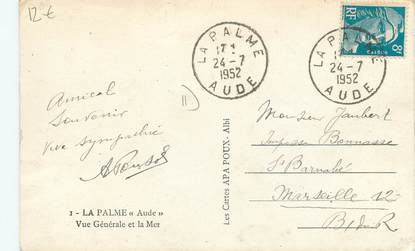 12.€
LA PALME
17 H
24-7
1952
AUDE
LA PALME
24-7
1952
AUDE
RF
8F
Amical
Souvenir
Vive sympathie
Monsieur Jaubert
Impasse Bonnasse
St Barnabé
Marseille 12
B. d. R
Les Cartes APA POUX - Albi
1 - LA PALME « Aude »
Vue Générale et la Mer